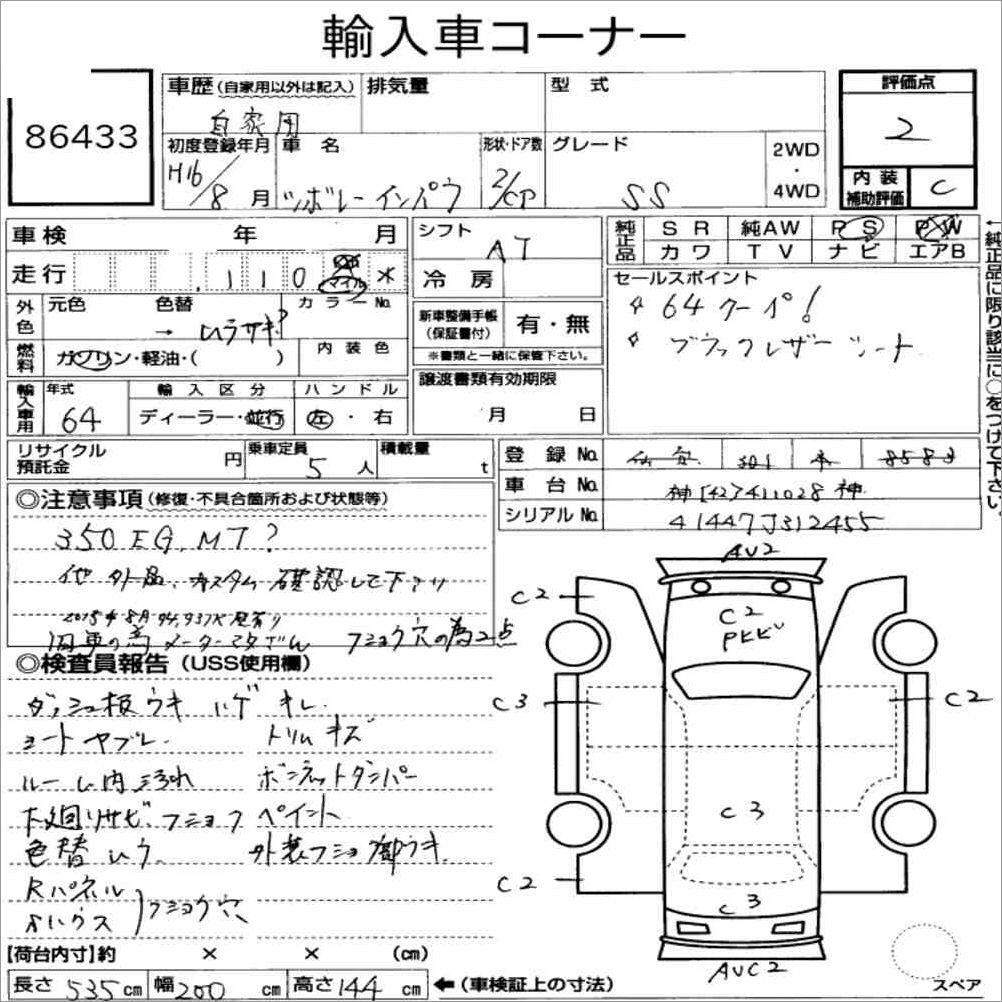 輸入車コーナー
86433
車歴(自家用以外は記入) 排気量 型 式 評価点
自家用 2
初度登録年月 車 名 形状・ドア数 グレード 2WD ・ 4WD
H16/8 月 シボレーインパラ 2/CP SS
内 装 補助評価 C
車検 年 月 シフト AT 純正品 S R 純AW P S P W
カ ワ T V ナ ビ エアB
走行 110 マイル 冷 房
←純正品に限り該当に○をつけて下さい。
セールスポイント
64クーペ!
ブラックレザーシート
外色 元色 色替 カラーNo.
→ ムラサキ?
新車整備手帳(保証書付) 有・無
※書類と一緒に保管下さい。
燃料 ガソリン・軽油・( ) 内 装 色
譲渡書類有効期限
月 日
輸入車用 年式 輸 入 区 分 ハ ン ド ル
64 ディーラー・並行 左・右
リサイクル預託金 円 乗車定員 5 人 積載量 t
登 録 No. 301 8583
車 台 No. 神[42]411028神
シリアル No. 41447J312455
◎注意事項(修復・不具合箇所および状態等)
350EG.MT?
他 外品、カスタム 確認して下サイ
2015年8月 94,937K 歴有り
旧車の為メーター フショク穴の為2点
◎検査員報告(USS使用欄)
ダッシュ板ウキ ハゲ キレ
シートヤブレ トリムキズ
ルーム内汚れ ボンネットダンパー
下廻りサビ.フショク ペイント
色替ムラ 外装フショク部ウキ
Rパネル
フショク穴
【荷台内寸】約 × × (cm)
長さ 535 cm 幅 200 cm 高さ 144 cm ←(車検証上の寸法)
AU2
C2
C2
PトビU
C3
C2
C3
C2
C3
AUC2
スペア